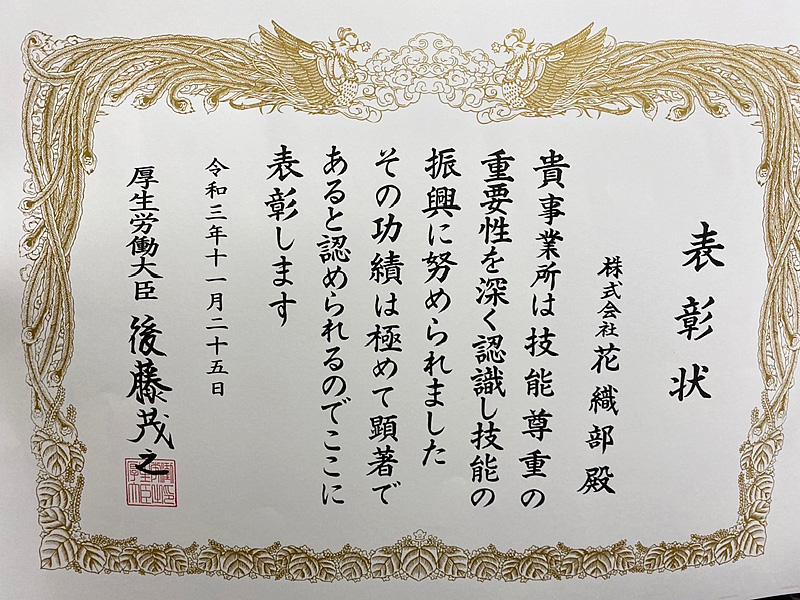 表彰状
株式会社 花織部 殿
貴事業所は技能尊重の
重要性を深く認識し技能の
振興に努められました
その功績は極めて顕著で
あると認められるのでここに
表彰します
令和三年十一月二十五日
厚生労働大臣 後藤茂之